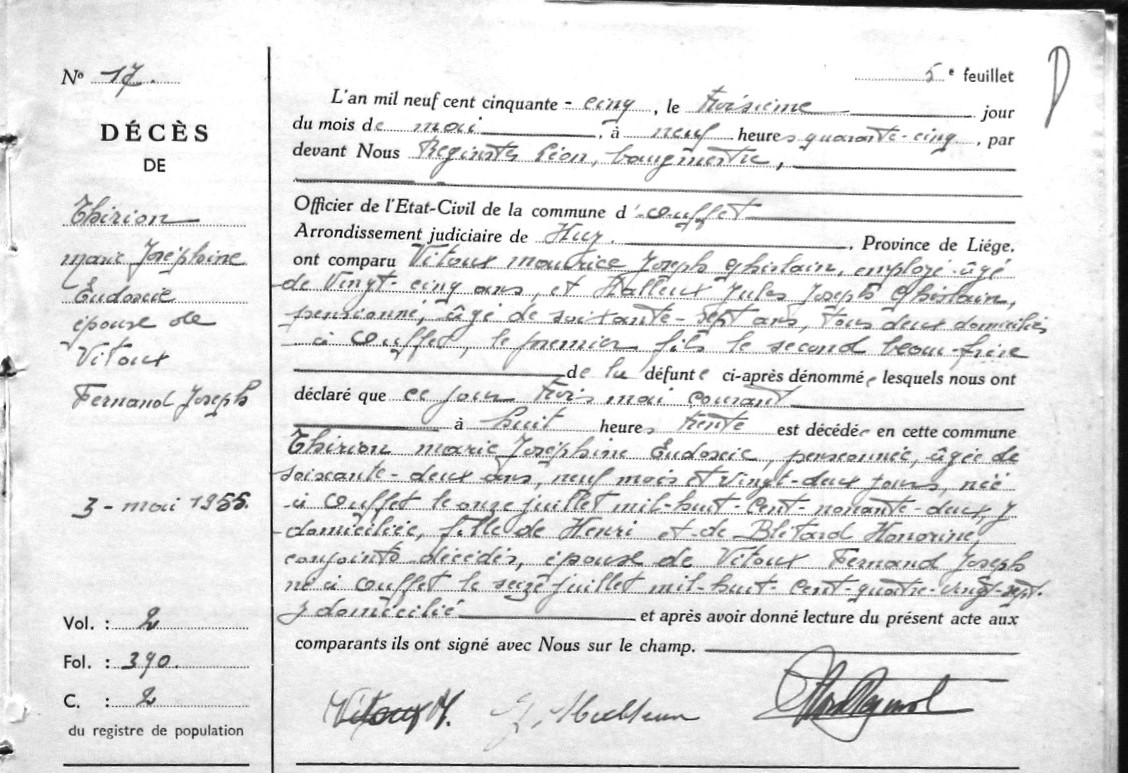 N° 17.
DÉCÈS
DE
Thirion
Marie Joséphine
Eudoxie
épouse de
Vitoux
Fernand Joseph
3 - mai 1955.
Vol. : 2
Fol. : 390.
C. : 2
du registre de population
5e feuillet
L'an mil neuf cent cinquante - cinq, le troisième jour
du mois de mai, à neuf heures quarante-cinq, par
devant Nous Léon, bourgmestre,
Officier de l'Etat-Civil de la commune d'Ouffet
Arrondissement judiciaire de Huy. , Province de Liége.
ont comparu Vitoux Maurice Joseph Ghislain, employé âgé
de vingt-cinq ans, et Halleux Jules Joseph Ghislain,
pensionné, âgé de soixante-sept ans, tous deux domiciliés
à Ouffet, le premier fils le second beau-frère
de la défunte ci-après dénommée lesquels nous ont
déclaré que ce jour trois mai courant
à huit heures trente est décédée en cette commune
Thirion Marie Joséphine Eudoxie, pensionnée, âgée de
soixante-deux ans, neuf mois et vingt-deux jours, née
à Ouffet le onze juillet mil-huit-cent-nonante-deux, y
domiciliée, fille de Henri et de Blétard Honorine,
conjoints décédés, épouse de Vitoux Fernand Joseph
né à Ouffet le seize juillet mil-huit-cent-quatre-vingt-sept.
y domicilié et après avoir donné lecture du présent acte aux
comparants ils ont signé avec Nous sur le champ.
Vitoux M. J. Halleux